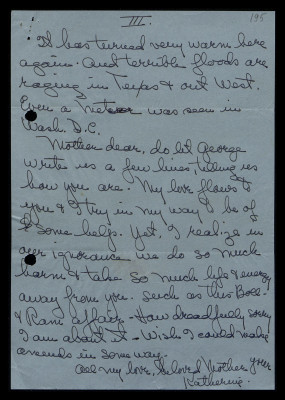 III.
195
It has turned very warm here
again. And terrible floods are
raging in Texas & out West.
Even a meteor was seen in
Wash. D.C.
Mother dear, do let George
write us a few lines, telling us
how you are. My love flows to
you & I try in my way to be of
some help. Yet, I realize in
our ignorance we do so much
harm & take so much life & energy
away from you. Such as this Bose-
& Rani affair. How dreadfully sorry
I am about it. Wish I could make
amends in some way.
All my love, beloved Mother your
Katherine.